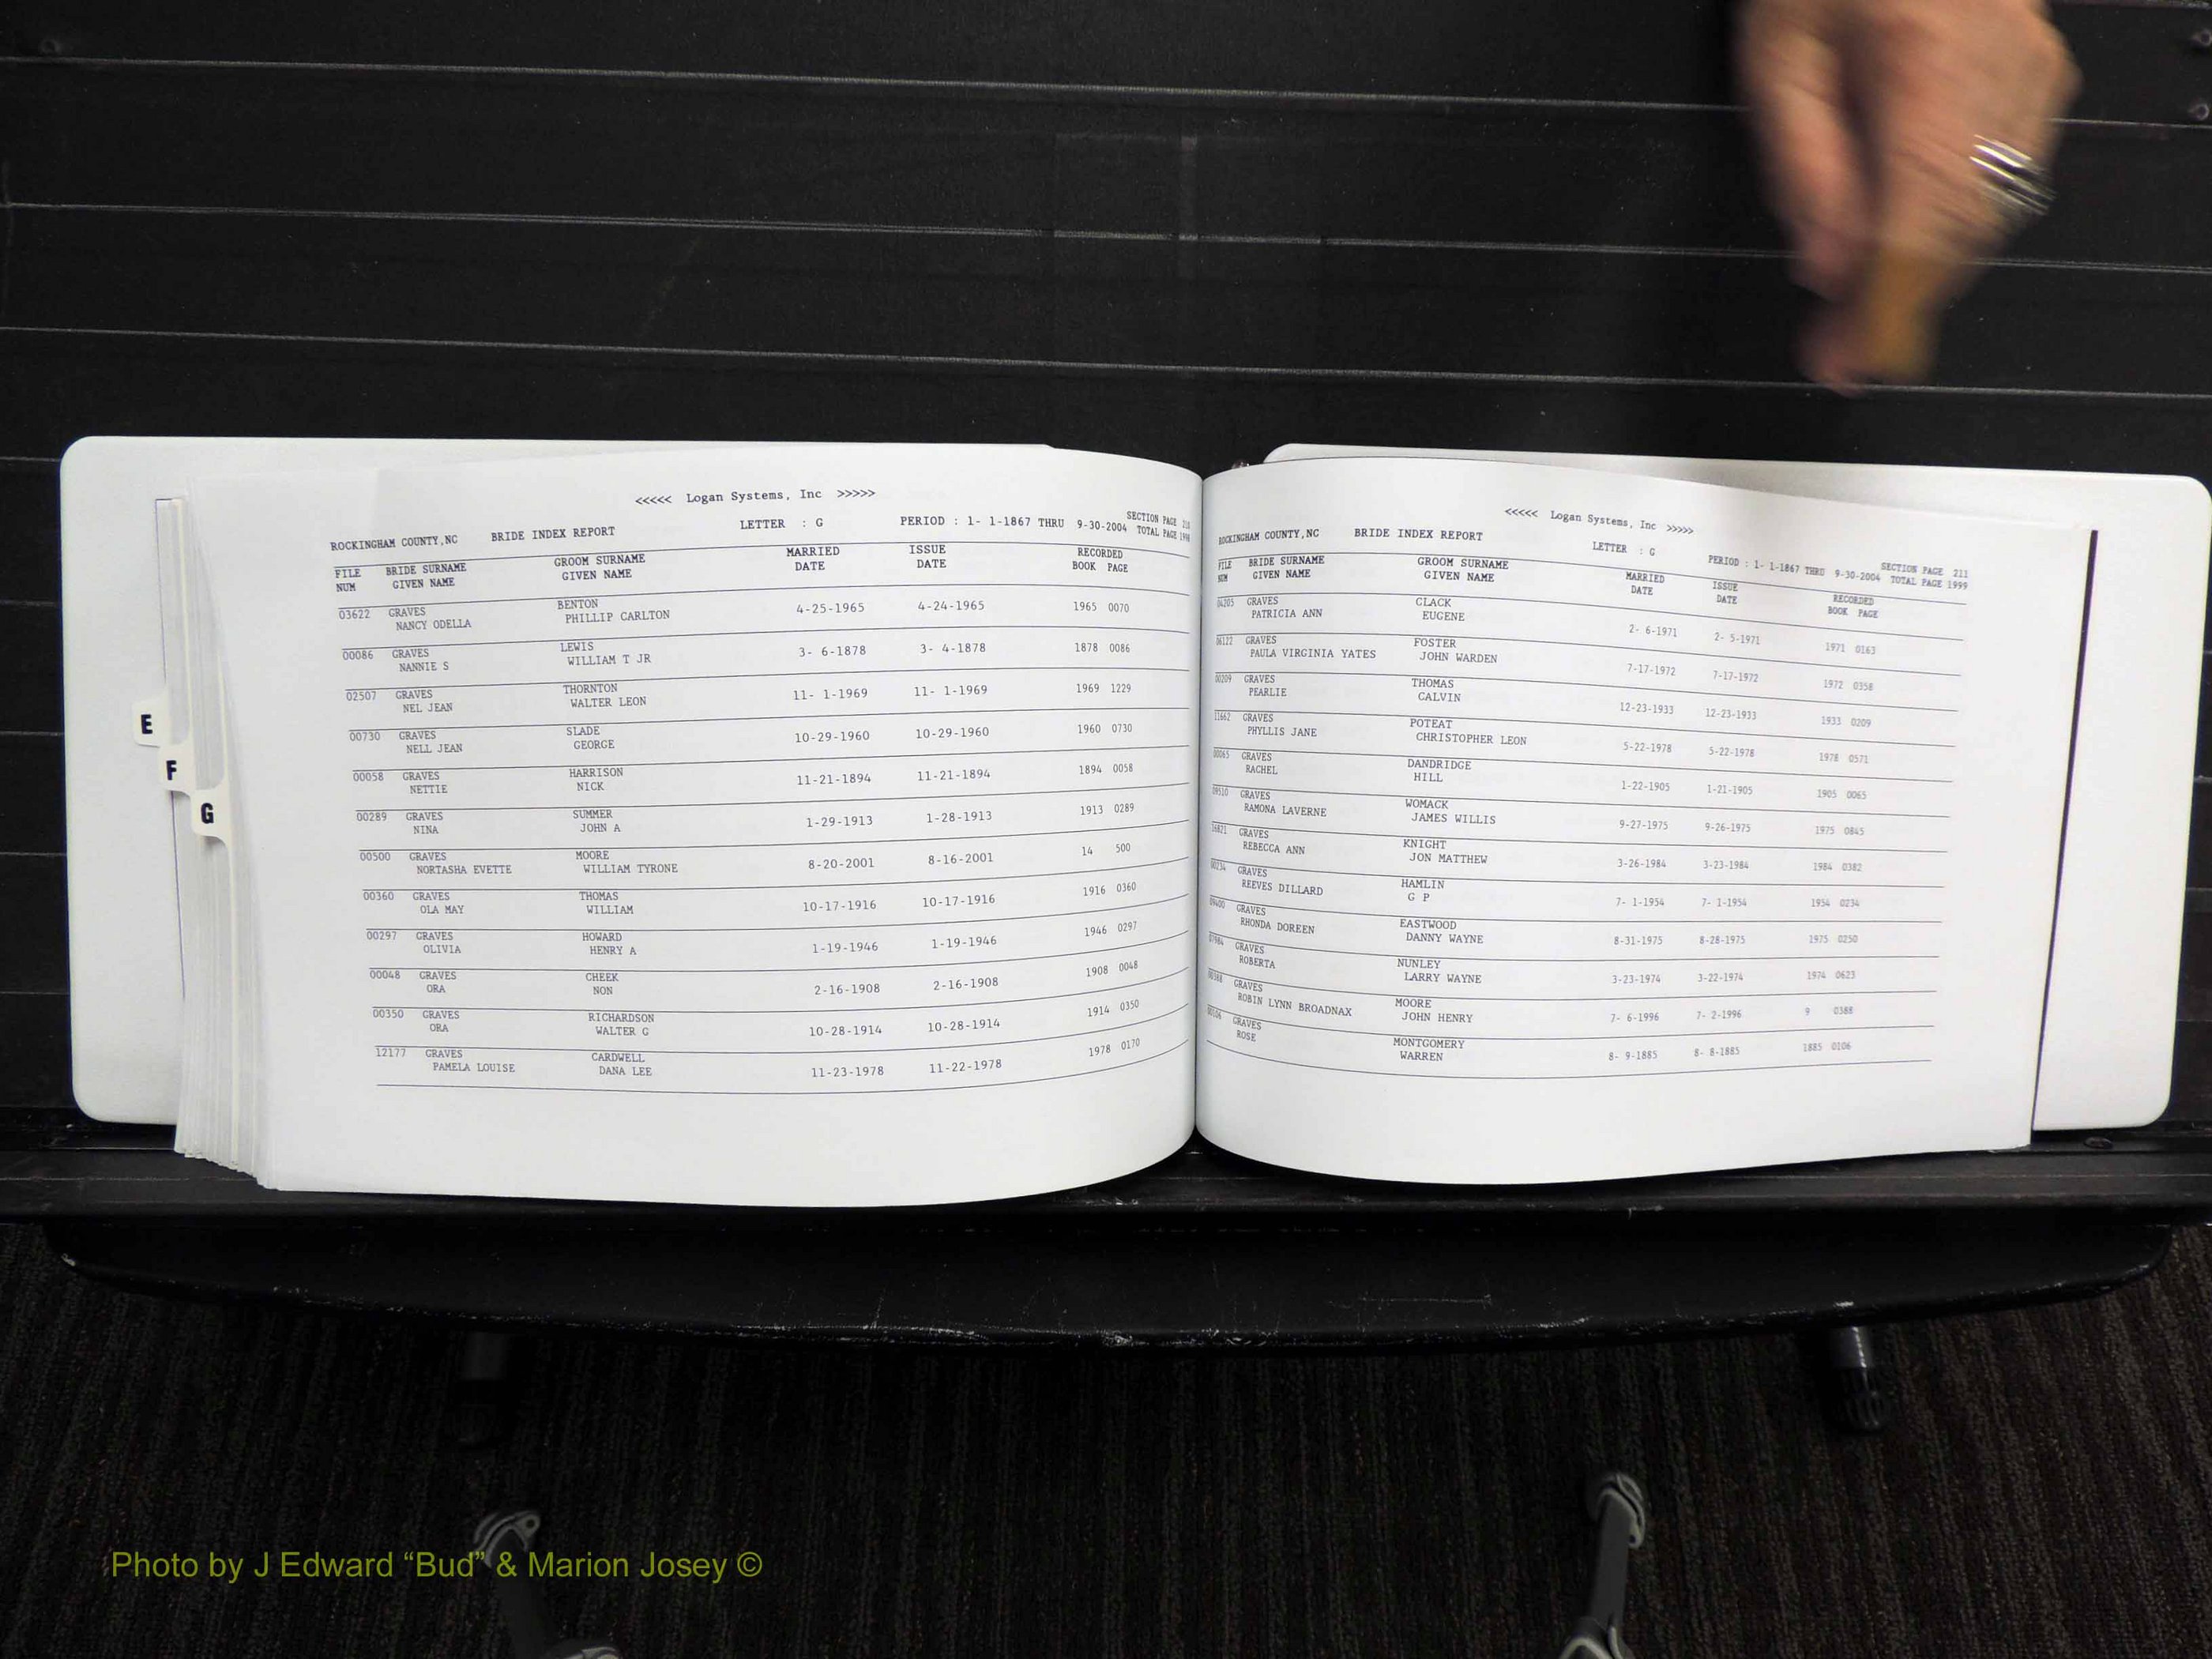 <<<<< Logan Systems, Inc >>>>>
ROCKINGHAM COUNTY,NC BRIDE INDEX REPORT LETTER : G PERIOD : 1- 1-1867 THRU 9-30-2004 SECTION PAGE
TOTAL PAGE
FILE BRIDE SURNAME GROOM SURNAME MARRIED ISSUE RECORDED
NUM GIVEN NAME GIVEN NAME DATE DATE BOOK PAGE
03622 GRAVES BENTON 4-25-1965 4-24-1965 1965 0070
NANCY ODELLA PHILLIP CARLTON
00086 GRAVES LEWIS 3- 6-1878 3- 4-1878 1878 0086
NANNIE S WILLIAM T JR
02507 GRAVES THORNTON 11- 1-1969 11- 1-1969 1969 1229
NEL JEAN WALTER LEON
00730 GRAVES SLADE 10-29-1960 10-29-1960 1960 0730
NELL JEAN GEORGE
00058 GRAVES HARRISON 11-21-1894 11-21-1894 1894 0058
NETTIE NICK
00289 GRAVES SUMMER 1-29-1913 1-28-1913 1913 0289
NINA JOHN A
00500 GRAVES MOORE 8-20-2001 8-16-2001 14 500
NORTASHA EVETTE WILLIAM TYRONE
00360 GRAVES THOMAS 10-17-1916 10-17-1916 1916 0360
OLA MAY WILLIAM
00297 GRAVES HOWARD 1-19-1946 1-19-1946 1946 0297
OLIVIA HENRY A
00048 GRAVES CHEEK 2-16-1908 2-16-1908 1908 0048
ORA NON
00350 GRAVES RICHARDSON 10-28-1914 10-28-1914 1914 0350
ORA WALTER G
12177 GRAVES CARDWELL 11-23-1978 11-22-1978 1978 0170
PAMELA LOUISE DANA LEE
<<<<< Logan Systems, Inc >>>>>
ROCKINGHAM COUNTY,NC BRIDE INDEX REPORT LETTER : G PERIOD : 1- 1-1867 THRU 9-30-2004 SECTION PAGE 211
TOTAL PAGE 1999
FILE BRIDE SURNAME GROOM SURNAME MARRIED ISSUE RECORDED
NUM GIVEN NAME GIVEN NAME DATE DATE BOOK PAGE
04205 GRAVES CLACK 2- 6-1971 2- 5-1971 1971 0163
PATRICIA ANN EUGENE
06122 GRAVES FOSTER 7-17-1972 7-17-1972 1972 0358
PAULA VIRGINIA YATES JOHN WARDEN
00209 GRAVES THOMAS 12-23-1933 12-23-1933 1933 0209
PEARLIE CALVIN
11662 GRAVES POTEAT 5-22-1978 5-22-1978 1978 0571
PHYLLIS JANE CHRISTOPHER LEON
00065 GRAVES DANDRIDGE 1-22-1905 1-21-1905 1905 0065
RACHEL HILL
09510 GRAVES WOMACK 9-27-1975 9-26-1975 1975 0845
RAMONA LAVERNE JAMES WILLIS
16821 GRAVES KNIGHT 3-26-1984 3-23-1984 1984 0382
REBECCA ANN JON MATTHEW
00234 GRAVES HAMLIN 7- 1-1954 7- 1-1954 1954 0234
REEVES DILLARD G P
09400 GRAVES EASTWOOD 8-31-1975 8-28-1975 1975 0250
RHONDA DOREEN DANNY WAYNE
07984 GRAVES NUNLEY 3-23-1974 3-22-1974 1974 0623
ROBERTA LARRY WAYNE
00388 GRAVES MOORE 7- 6-1996 7- 2-1996 9 0388
ROBIN LYNN BROADNAX JOHN HENRY
00106 GRAVES MONTGOMERY 8- 9-1885 8- 8-1885 1885 0106
ROSE WARREN
E
F
G
Photo by J Edward “Bud” & Marion Josey ©